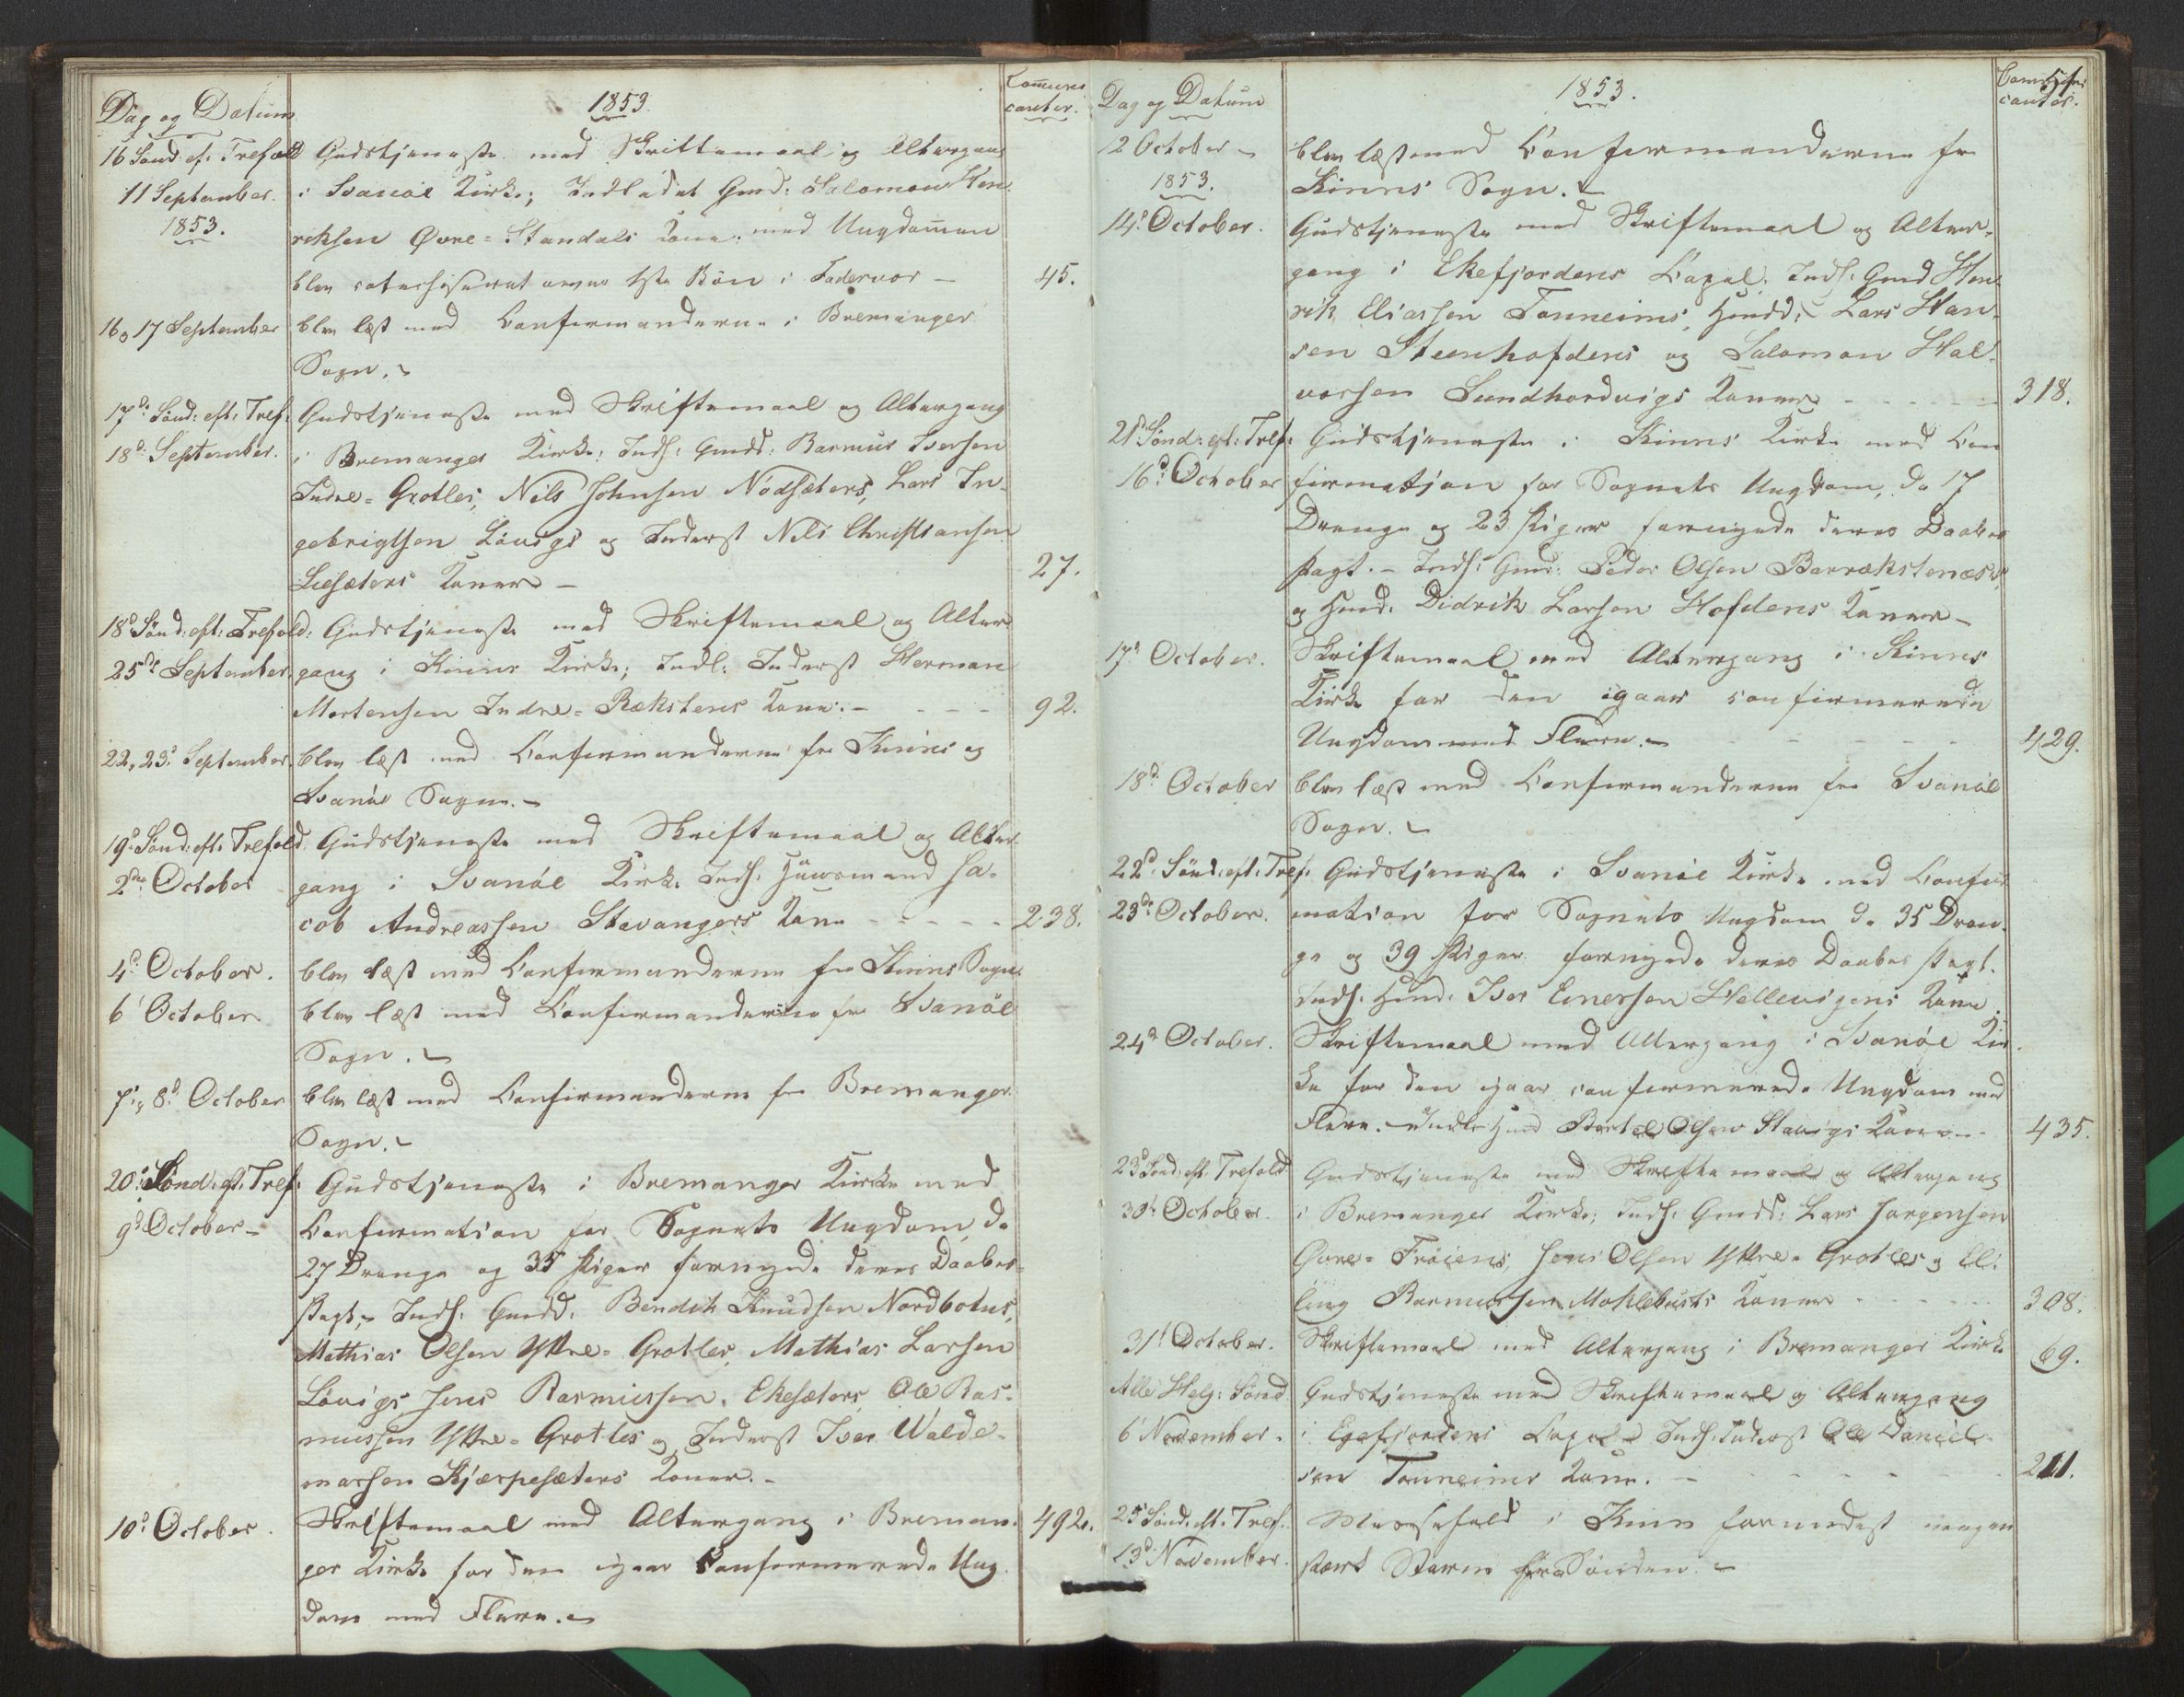 Dag og Datum
1853.
Communicantes.
16 Sønd: ef: Trefold Gudstjeneste med Skriftemaal og Altergang
11 September. i Svanøe Kirke; Indledet Gmd: Salomon Hen-
1853. riksen Øvre-Standals Kone; med Ungdommen
blev catechiseret over 1ste Bøn i Fadervor — 45.
16, 17 September blev læst med Confirmanderne i Bremanger
Sogn. —
17d: Sønd: eft: Tref: Gudstjeneste med Skriftemaal og Altergang
18d: September. i Bremanger Kirke; Indl: Gmdd: Rasmus Iversen
Indre-Grotles, Nils Johnsen Nødsæters, Lars In-
gebrigtsen Løvigs og Inderst Nils Christiansen
Liesæters Koner — 27.
18d Sønd: eft: Trefold: Gudstjeneste med Skriftemaal og Alter
25de September. gang i Kinns Kirke; Indl: Inderst Herman
Mortensen Indre-Rækstens Kone. — 92.
22, 23d September. blev læst med Confirmanderne fra Kinns og
Svanøe Sogne. —
19d Sønd: eft: Trefold Gudstjeneste med Skriftemaal og Alter
2den October gang i Svanøe Kirke Indl: Huusmand Ja-
cob Andreassen Stavangers Kone - - - - - 238.
4d October. blev læst med Confirmanderne fra Kinns Sogn
6t October. blev læst med Confirmanderne fra Svanøe
Sogn. —
7d, 8d October blev læst med Confirmanderne fra Bremanger
Sogn. —
20d Sønd: ef: Tref: Gudstjeneste i Bremanger Kirke med
9d October — Confirmation for Sognets Ungdom, da
27 Drenge og 35 Piger fornyede deres Daabes-
pagt; Indl: Gmdd: Bendik Knudsen Nordbotns,
Mathias Olsen Yttre-Grotles, Mathias Larsen
Løvigs Jens Rasmussen Ekesæters, Ole Ras-
mussen Yttre-Grotles og Inderst Iver Walde-
marsen Kjærpesæters Koner. —
10d October. Skriftemaal med Altergang i Breman- 492.
ger Kirke for den igaar Confirmerede Ung
dom med Flere. —
Dag og Datum
1853.
Communicantes.
12 October — blev læst med Confirmanderne fra
1853. Kinns Sogn. —
14d October. Gudstjeneste med Skriftemaal og Alter-
gang i Ekefjordens Capel. Indl: Gmd Hen
rik Eliassen Tonneims, Hmdd: Lars Han-
sen Steenhofdens og Salomon Hal-
vorsen Sundhordvigs Koner - - - - - 318.
21d Sønd: eft: Tref: Gudstjeneste i Kinns Kirke med Con
16d October firmatjon for Sognets Ungdom, da 17
Drenge og 23 Piger fornyede deres Daabes
pagt. — Indl: Gmd: Peder Olsen Barrækstenæs,
og Hmd: Didrik Larsen Hofdens Koner —
17d October. Skriftemaal med Altergang i Kinns
Kirke for den igaar confirmerede
Ungdom med Flere. — 429.
18d October blev læst med Confirmanderne fra Svanøe
Sogn. —
22d Sønd: eft: Tref: Gudstjeneste i Svanøe Kirke med Confir
23de October. mation for Sognets Ungdom da 35 Dren-
ge og 39 Piger fornyede deres Daabes Pagt.
Indl: Hmd: Iver Einersen Hellevigens Kone.
24d October. Skriftemaal med Altergang i Svanøe Kir
ke for den igaar confirmerede Ungdom med
Flere. — Indl: Hmd Bertel Olsen Stavigs Kone - - 435.
23d Sønd: eft: Trefold Gudstjeneste med Skriftemaal og Altergang
30t October. i Bremanger Kirke; Indl: Gmdd: Lars Jørgensen
Øvre-Frøiens, Jens Olsen Yttre-Grotles og El-
ling Rasmussen Mohlebusts Koner - - - - - 308.
31t October. Skriftemaal med Altergang i Bremanger Kirke 69.
Alle Helg: Sønd Gudstjeneste med Skriftemaal og Altergang
6t November. i Egefjordens Capel Indl: Inderst Ole Daniel-
sen Tonneims Kone. — 211.
25 Sønd. eft. Tref. Messefald i Kinn formedelst megen
13d November. stærk Storm fra Sønden. —